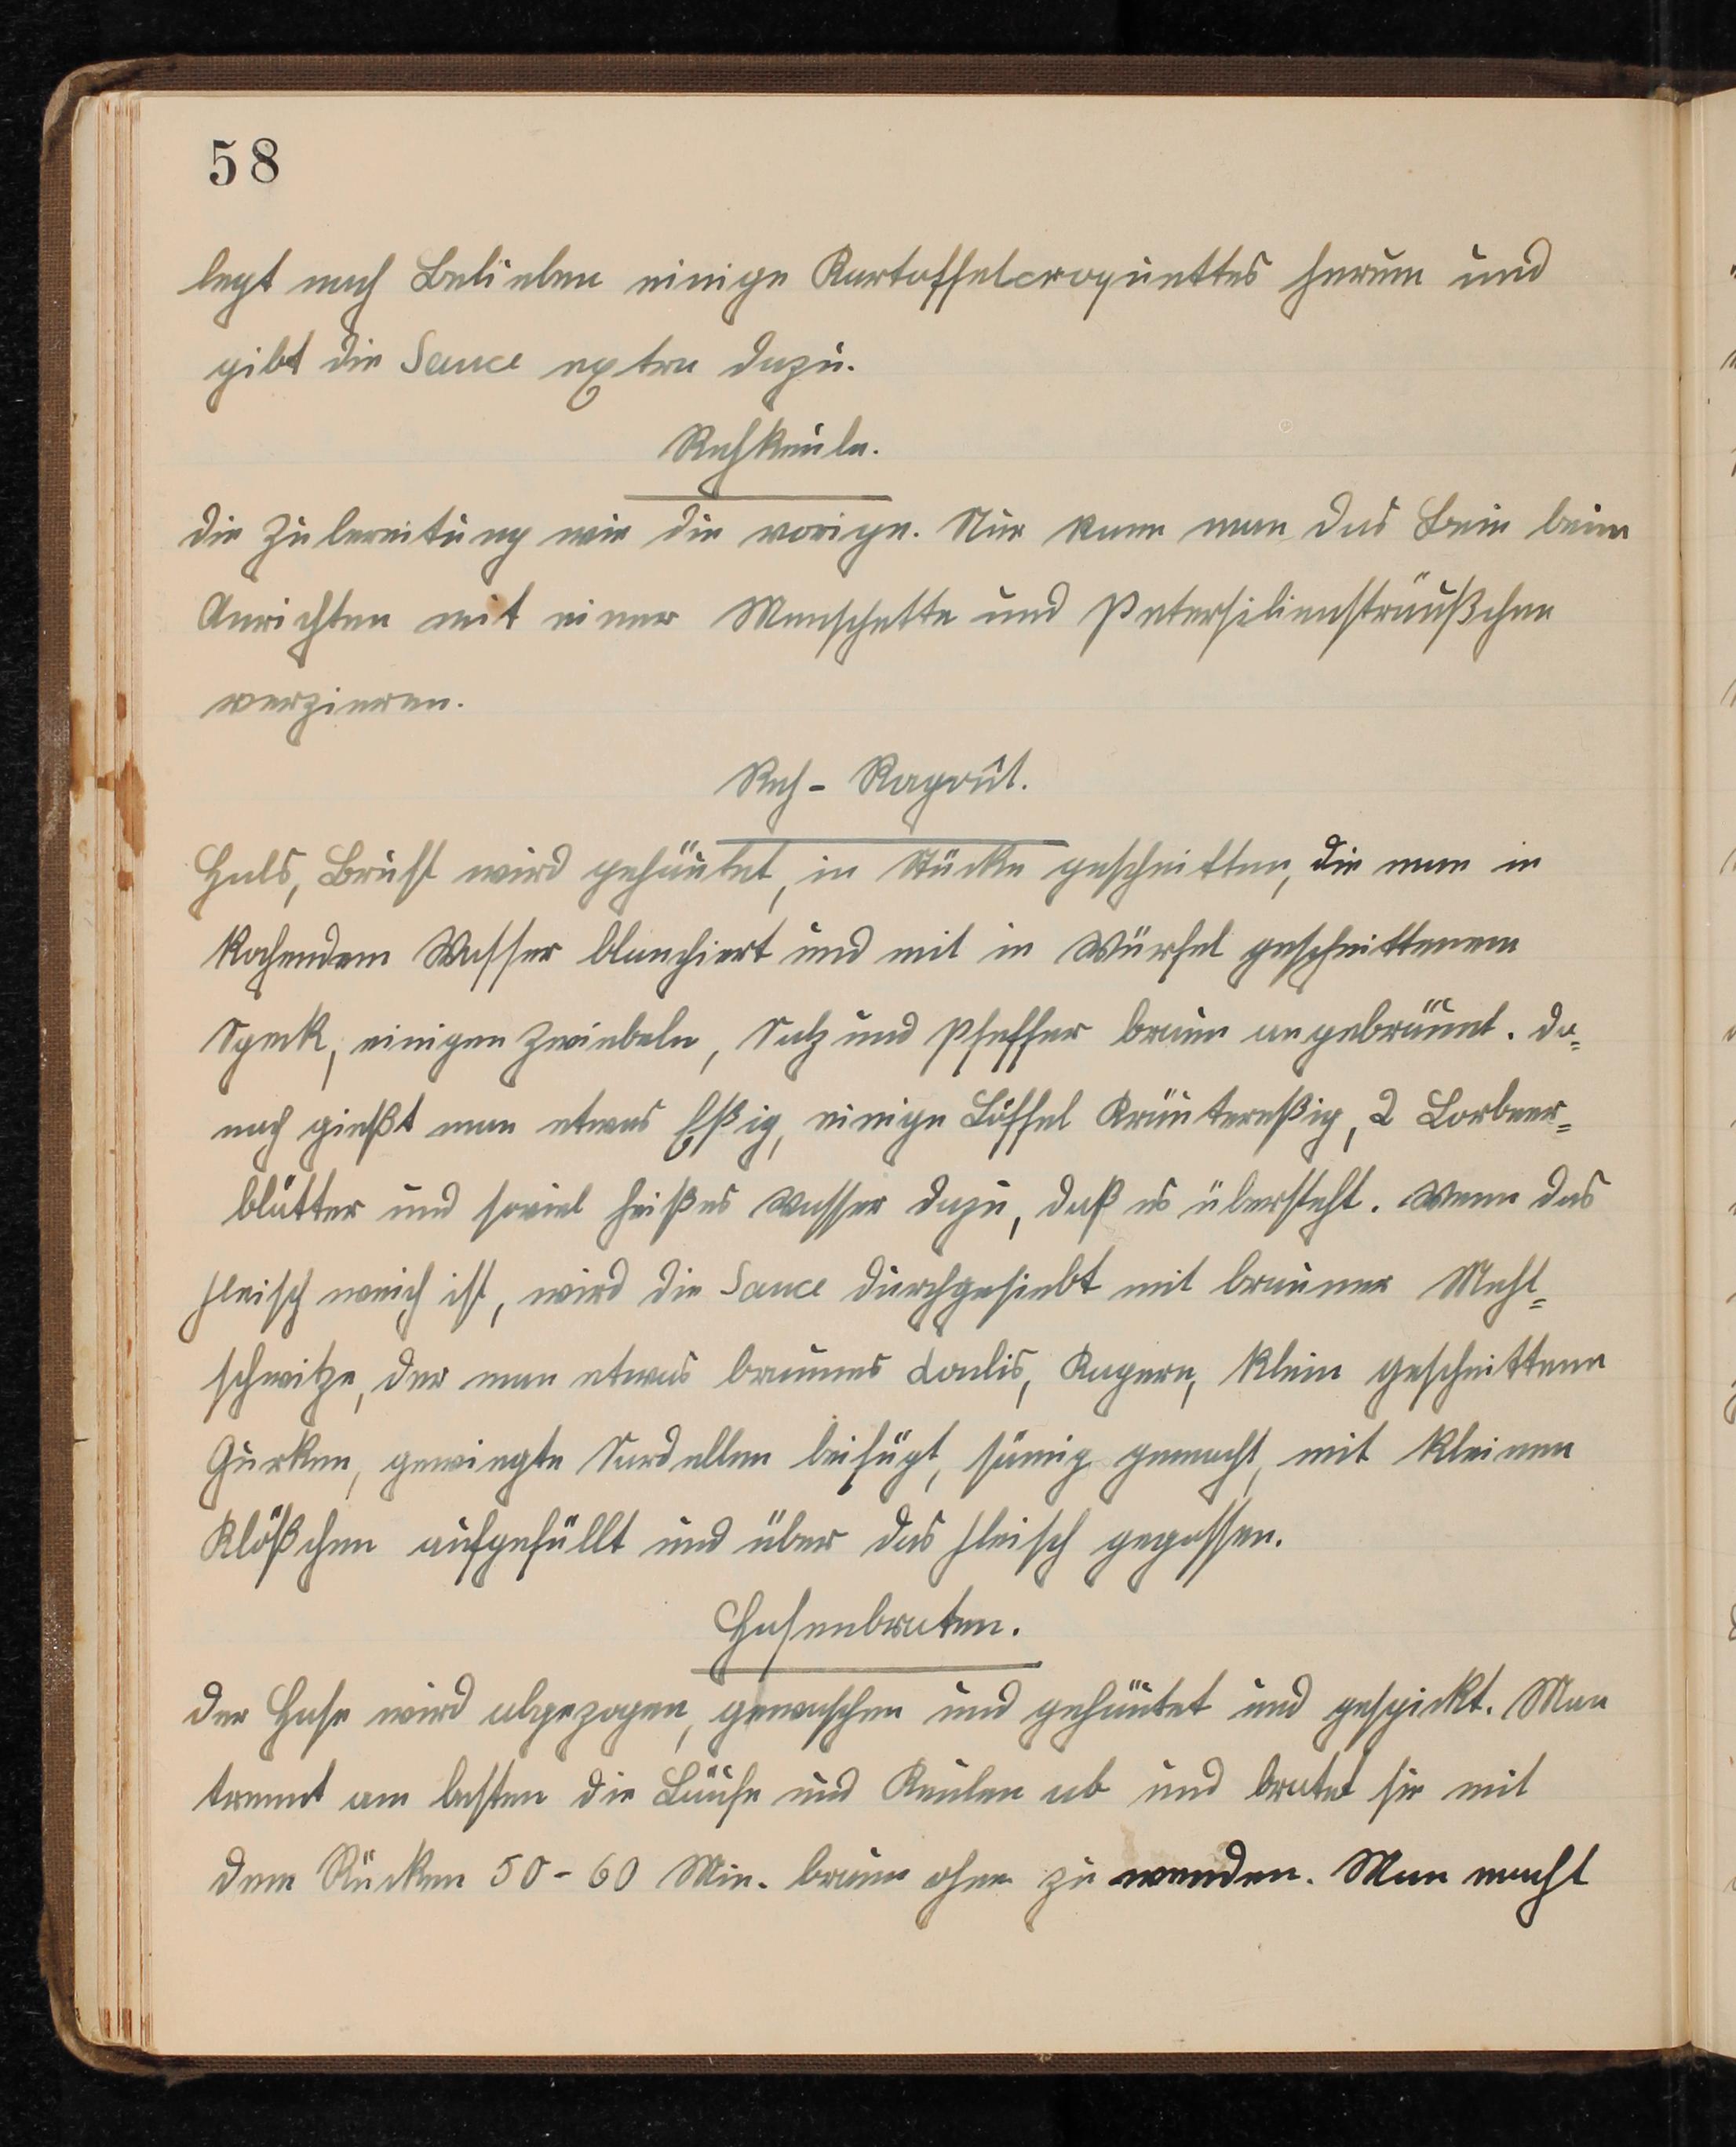 58
legt nach Belieben einige Kartoffelcroquettes herum und
gibt die Sauce extra dazu.
Rehkeule.
die Zubereitung wie die vorige. Nur kann man das Bein beim
Anrichten mit einer Manschette und Petersiliensträußchen
verzieren.
Reh- Ragoût.
Hals, Brust wird gehäutet, in Stücke geschnitten, die man in
kochendem Wasser blanchiert und mit in Würfel geschnittenem
Speck, einigen Zwiebeln, Salz und Pfeffer braun angebräunt. da=
nach gießt man etwas Eßig, einige Löffel Kräutereßig, 2 Lorbeer=
blätter und soviel heißes Wasser dazu, daß es übersteht. Wenn das
Fleisch weich ist, wird die Sauce durchgesiebt mit brauner Mehl=
schwitze, der man etwas braunes Coulis, Kapern, klein geschnittene
Gurken, gewiegte Sardellen beifügt, sämig gemacht, mit kleinen
Klößchen aufgefüllt und über das Fleisch gegossen.
Hasenbraten.
der Hase wird abgezogen, gewaschen und gehäutet und gespickt. Man
trennt am besten die Läufe und Keulen ab und bratet sie mit
dem Rücken 50-60 Min. braun ohne zu wenden. Man macht